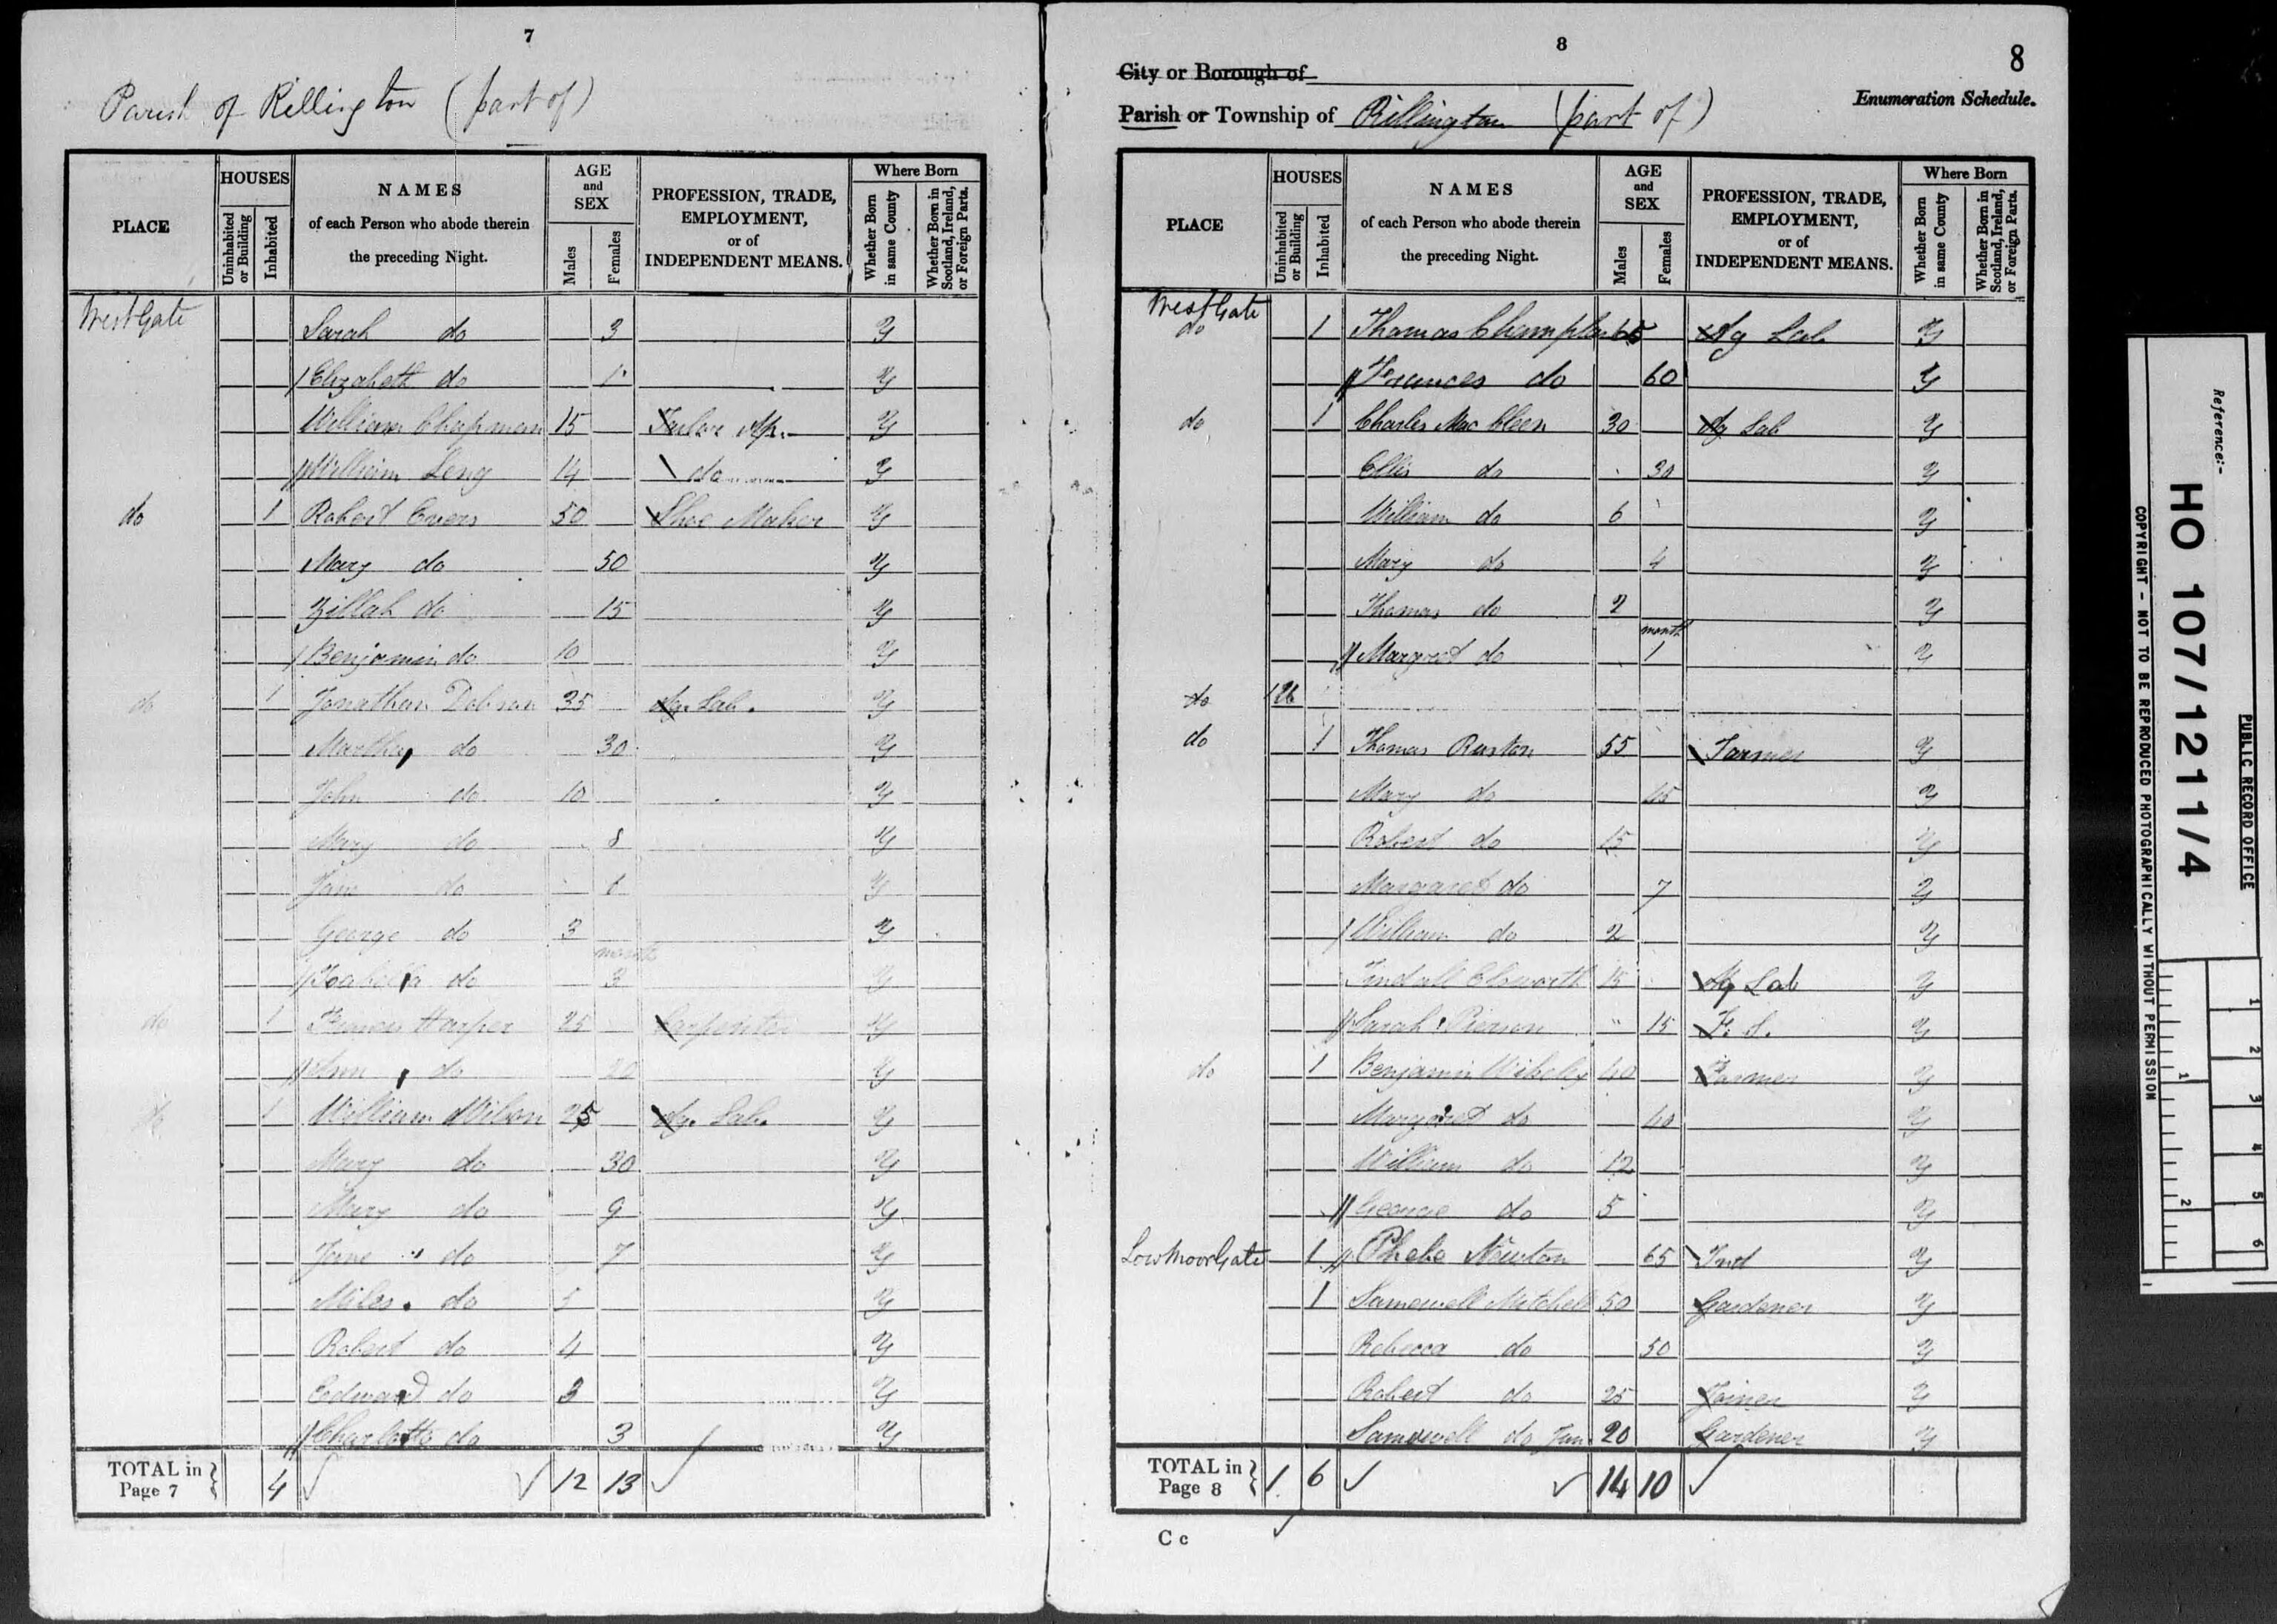 7
Parish of Rillington (part of)
PLACE
HOUSES
Uninhabited or Building
Inhabited
NAMES
of each Person who abode therein
the preceding Night.
AGE
and
SEX
Males
Females
PROFESSION, TRADE,
EMPLOYMENT,
or of
INDEPENDENT MEANS.
Where Born
Whether Born in same County
Whether Born in Scotland, Ireland, or Foreign Parts.
WestGate Sarah do 3 Y
Elizabeth do 1 Y
William Chapman 15 Tailor Ap. Y
William Leng 14 do Y
do 1 Robert Evers 50 Shoe Maker Y
Mary do 50 Y
Zillah do 15 Y
Benjamin do 10 Y
do 1 Jonathan Dobson 35 Ag. Lab. Y
Martha do 30 Y
John do 10 Y
Mary do 8 Y
Jane do 6 Y
George do 3 Y
month
Isabella do 3 Y
do 1 Francis Harper 25 Carpenter Y
Ann do 20 Y
do 1 William Wilson 25 Ag. Lab. Y
Mary do 30 Y
Mary do 9 Y
Jane do 7 Y
Miles do 5 Y
Robert do 4 Y
Edward do 3 Y
Charlotte do 3 Y
TOTAL in Page 7 4 12 13
8
8
City or Borough of
Enumeration Schedule.
Parish or Township of Rillington (part of)
PLACE
HOUSES
Uninhabited or Building
Inhabited
NAMES
of each Person who abode therein
the preceding Night.
AGE
and
SEX
Males
Females
PROFESSION, TRADE,
EMPLOYMENT,
or of
INDEPENDENT MEANS.
Where Born
Whether Born in same County
Whether Born in Scotland, Ireland, or Foreign Parts.
WestGate
do 1 Thomas 65 Ag Lab Y
Frances do 60 Y
do 1 Charles Mac Cleen 30 Ag Lab Y
Ellis do 30 Y
William do 6 Y
Mary do 4 Y
Thomas do 2 Y
month
Margret do 1 Y
do
do 1 Thomas Ruston 55 Farmer Y
Mary do 45 Y
Robert do 15 Y
Margaret do 7 Y
William do 2 Y
Tindall 15 Ag Lab Y
Sarah Pierson 15 F. S. Y
do 1 Benjamin 40 Farmer Y
Margaret do 40 Y
William do 12 Y
George do 5 Y
LowMoorGate 1 Phebe Newton 65 Ind Y
1 Samewell Mitchell 50 Gardener Y
Rebecca do 50 Y
Robert do 25 Joiner Y
Samewell do Jun 20 Gardener Y
TOTAL in Page 8 1 6 14 10
C c
Reference:-
HO 107/1211/4
PUBLIC RECORD OFFICE
COPYRIGHT - NOT TO BE REPRODUCED PHOTOGRAPHICALLY WITHOUT PERMISSION
1 2 3 4 5 6
1 2